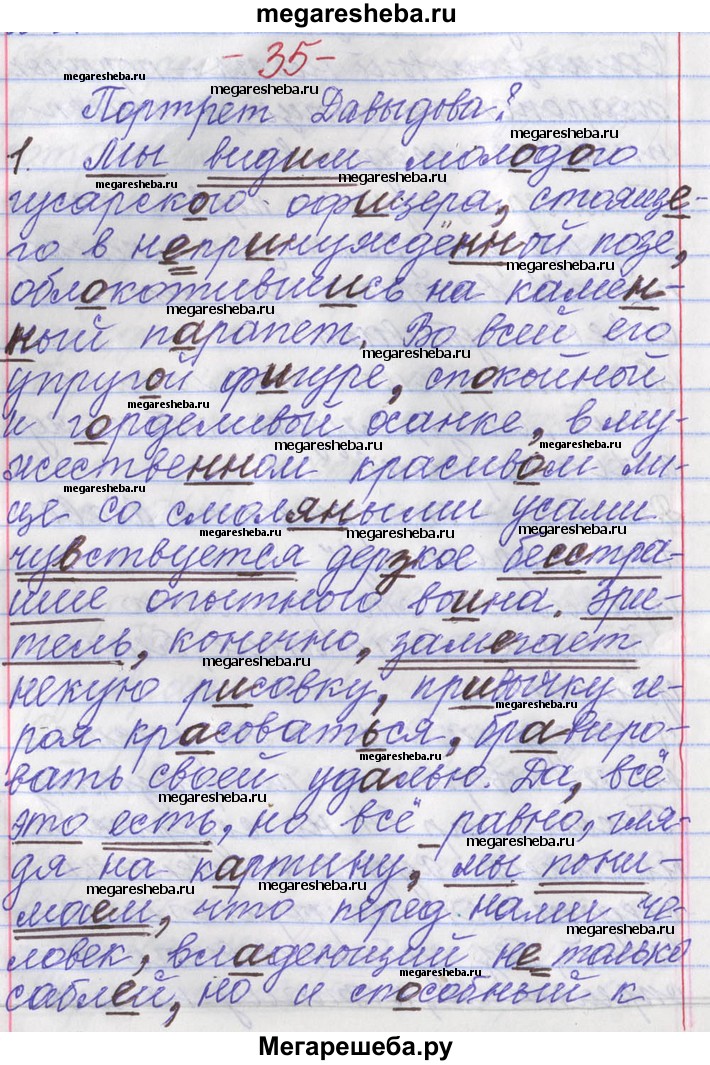 megaresheba.ru
- 35 -
Портрет Давыдова?
1. Мы видим молодого
гусарского офицера, стояще-
го в непринуждённой позе,
облокотившись на камен-
ный парапет. Во всей его
упругой фигуре, спокойной
и горделивой осанке, в му-
жественном красивом ли-
це со смоляными усами
чувствуется дерзкое бесстра-
шие опытного воина. Зри-
тель, конечно, замечает
некую рисовку, привычку ге-
роя красоваться, бравиро-
вать своей удалью. Да, всё
это есть, но всё равно, гля-
дя на картину, мы пони-
маем, что перед нами че-
ловек, владеющий не только
саблей, но и способный к
Мегарешеба.ру